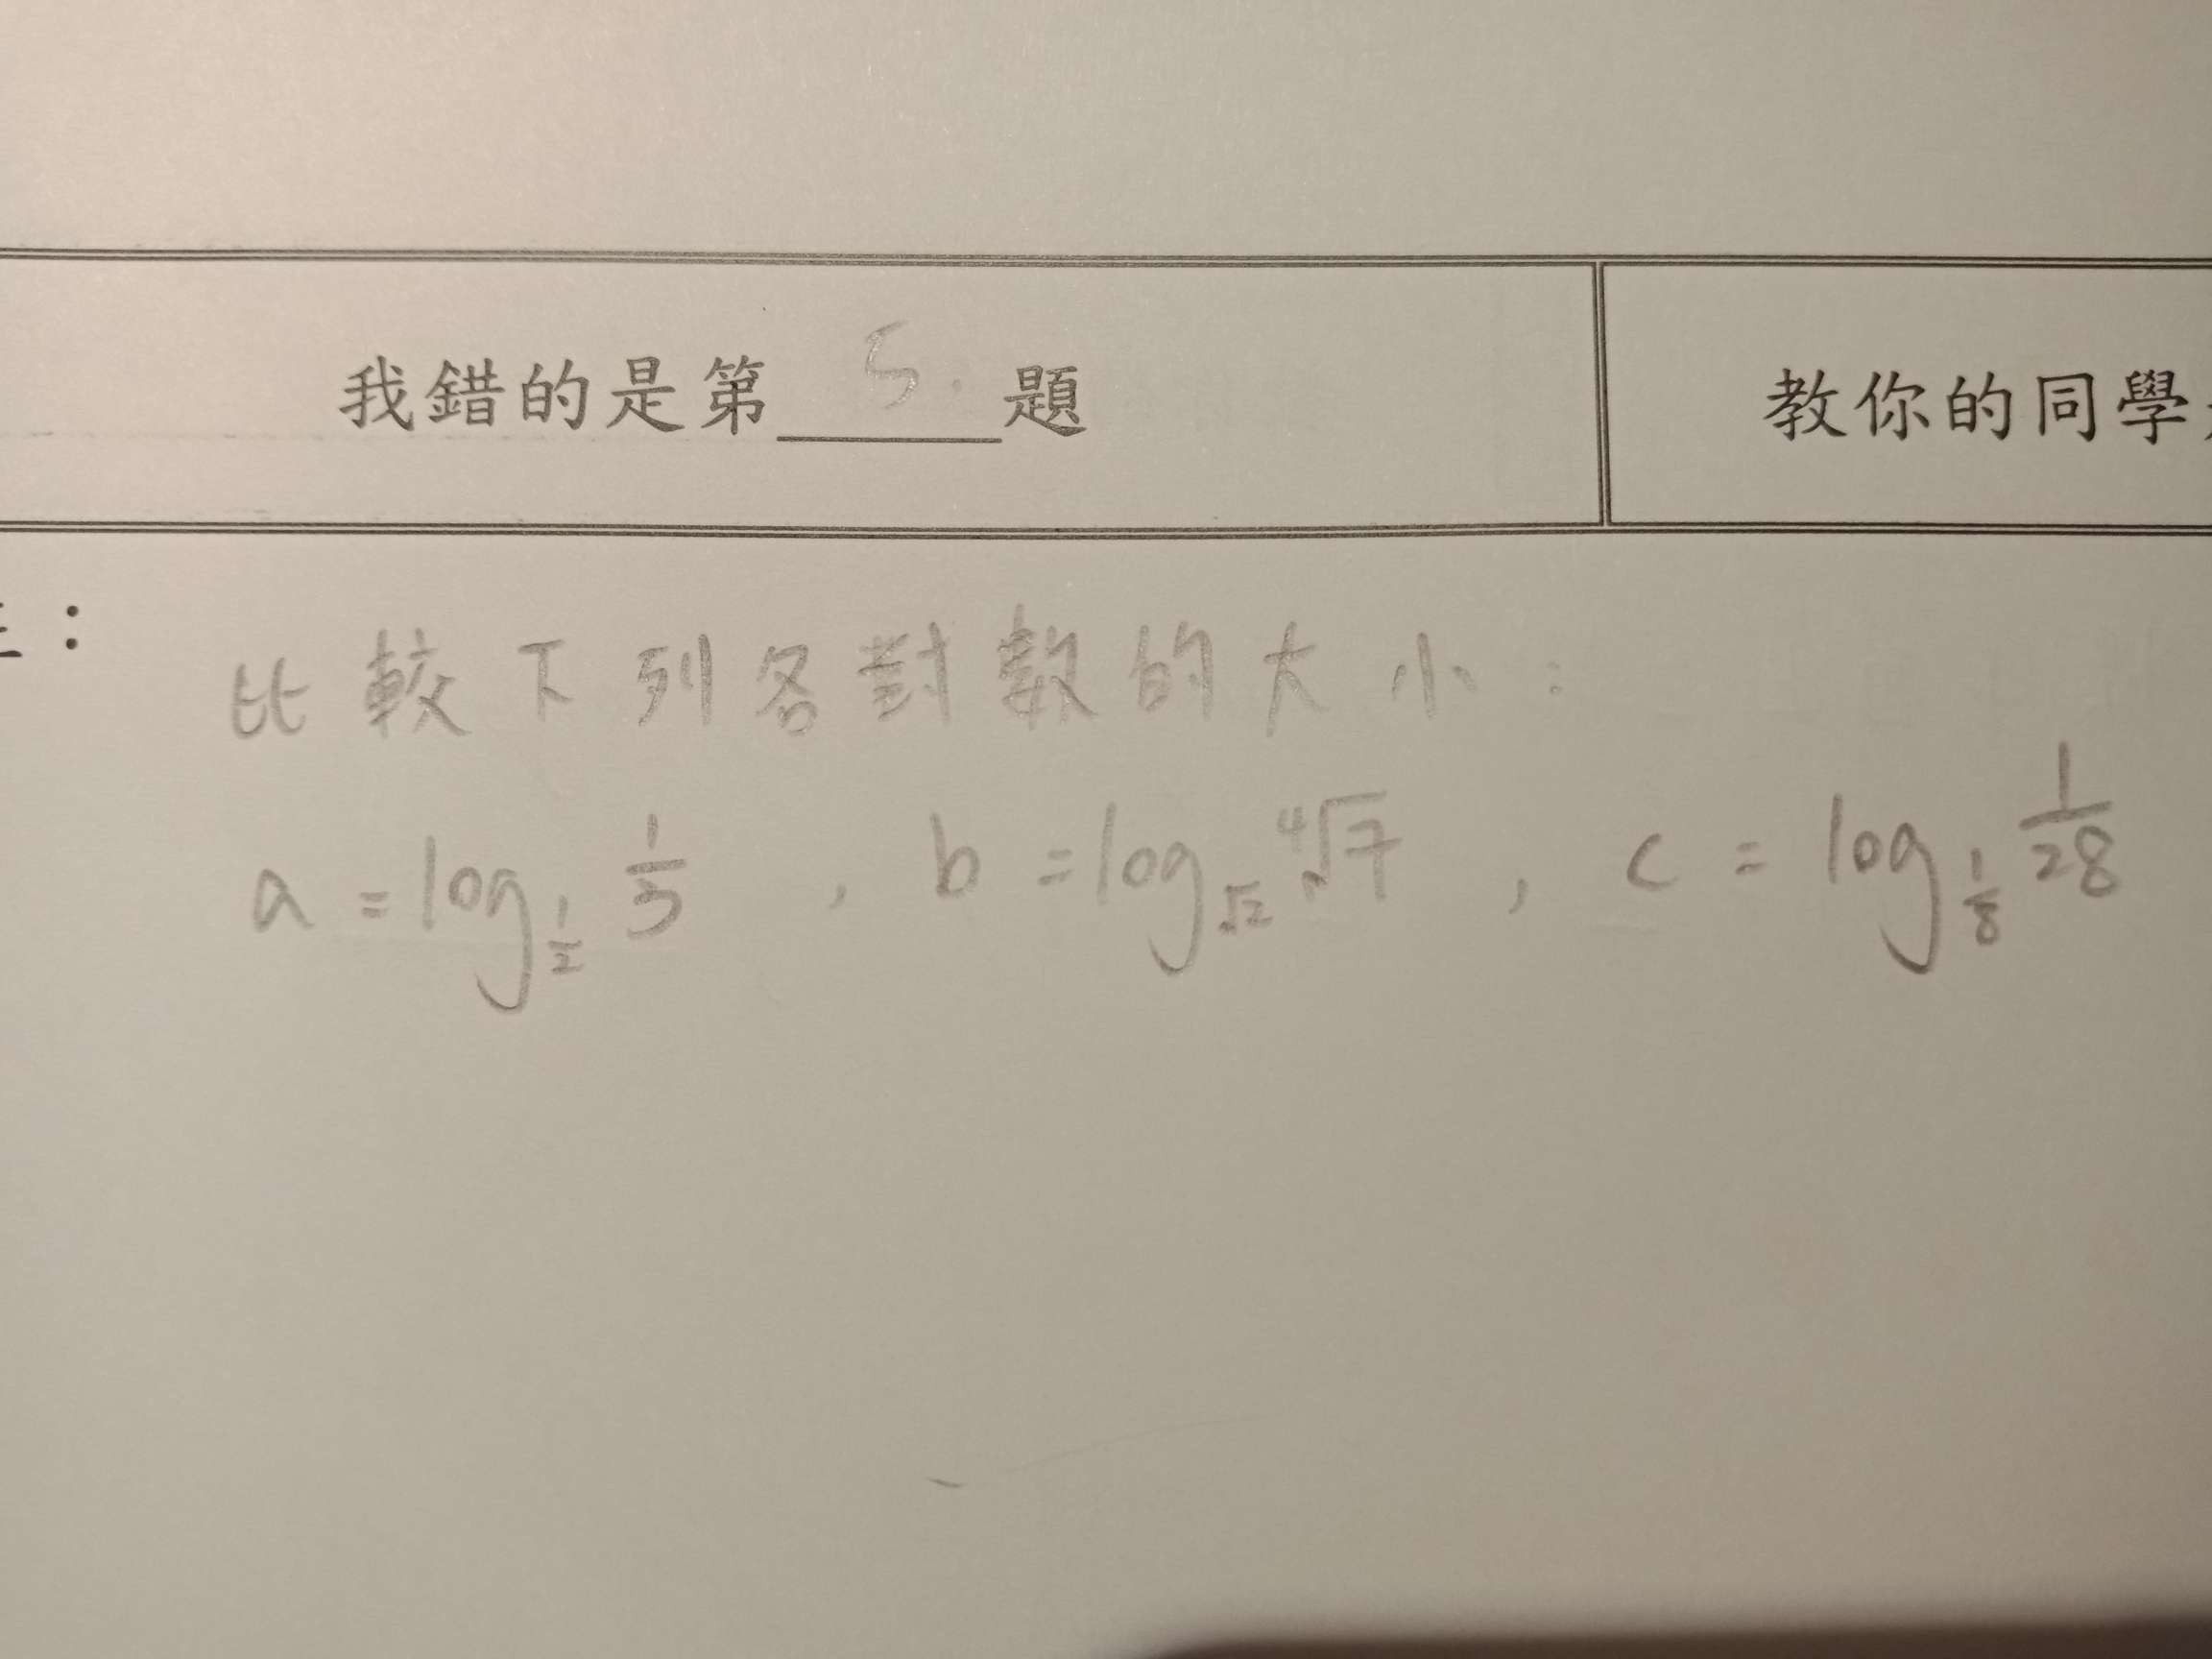 我錯的是第 5. 題
教你的同學
：
比較下列各對數的大小：
a = log_{1/2} 1/3 , b = log_{√2} ⁴√7 , c = log_{1/8} 1/28